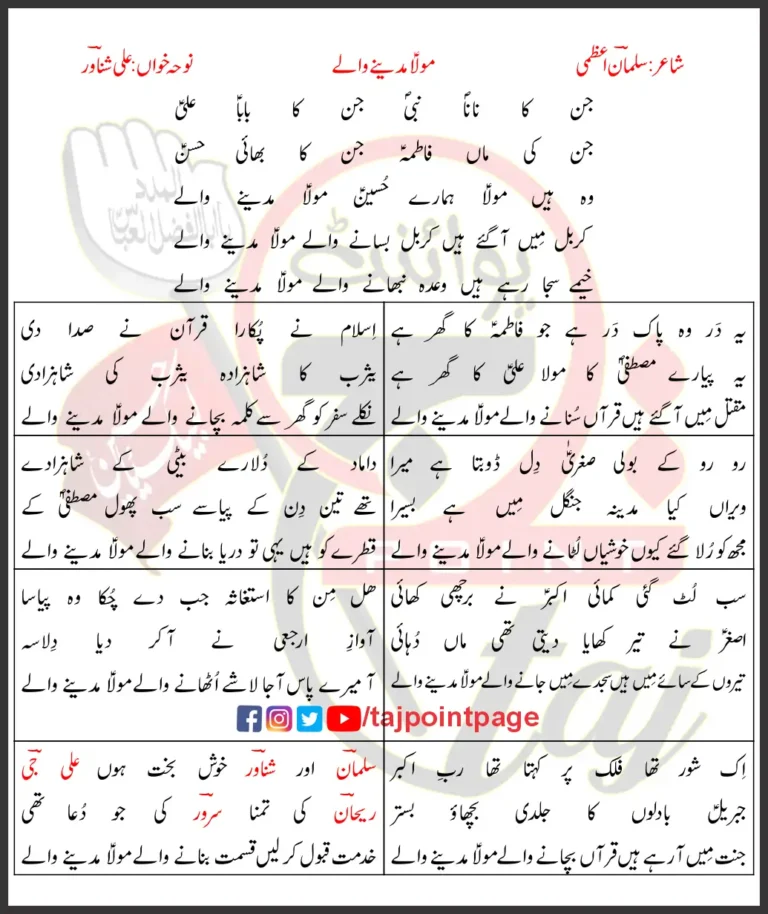 شاعر: سلمانؔ اعظمی
مولاؑ مدینے والے
نوحہ خواں: علی شناورؔ
جن کا ناناؐ نبیؐ جن کا باباؑ علیؑ
جن کی ماں فاطمہؑ جن کا بھائی حسنؑ
وہ ہیں مولاؑ ہمارے حُسینؑ مولاؑ مدینے والے
کربل مِیں آ گئے ہیں کربل بسانے والے مولاؑ مدینے والے
خیمے سجا رہے ہیں وعدہ نبھانے والے مولاؑ مدینے والے
یہ دَر وہ پاک دَر ہے جو فاطمہؑ کا گھر ہے
یہ پیارے مصطفیٰؐ کا مولا علیؑ کا گھر ہے
مقتل مِیں آ گئے ہیں قرآں سُنانے والے مولاؑ مدینے والے
اِسلام نے پُکارا قرآن نے صدا دی
یثرب کا شاہزادہ یثرب کی شاہزادی
نکلے سفر کو گھر سے کلمہ بچانے والے مولاؑ مدینے والے
رو رو کے بولی صغریٰؑ دِل ڈوبتا ہے میرا
ویراں کیا مدینہ جنگل مِیں ہے بسیرا
مجھ کو رُلا گئے کیوں خوشیاں لُٹانے والے مولاؑ مدینے والے
داماد کے دُلارے بیٹی کے شاہزادے
تھے تین دِن کے پیاسے سب پھول مصطفیٰؐ کے
قطرے کو ہیں یہی تو دریا بنانے والے مولاؑ مدینے والے
سب لُٹ گئی کمائی اکبرؑ نے برچھی کھائی
اصغرؑ نے تیر کھایا دیتی تھی ماں دُہائی
تیروں کے سائے مِیں ہیں سجدے مِیں جانے والے مولاؑ مدینے والے
ھل مِن کا استغاثہ جب دے چُکا وہ پیاسا
آوازِ ارجعی نے آ کر دیا دِلاسہ
آ میرے پاس آ جا لاشے اُٹھانے والے مولاؑ مدینے والے
/tajpointpage
اِک شور تھا فلک پر کہتا تھا ربِ اکبر
جبریلؑ بادلوں کا جلدی بچھاؤ بستر
جنت مِیں آ رہے ہیں قرآں بچانے والے مولاؑ مدینے والے
سلمانؔ اور شناورؔ خوش بخت ہوں علی جیؔ
ریحانؔ کی تمنا سرورؔ کی جو دُعا تھی
خدمت قبول کر لیں قسمت بنانے والے مولاؑ مدینے والے
پوائنٹ
تاج
POINT
taj